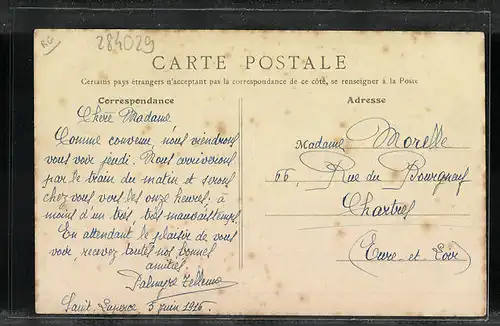 284029
CARTE POSTALE
Certains pays étrangers n'acceptant pas la correspondance de ce côté, se renseigner à la Poste
Correspondance
Chère Madame
Comme convenu nous viendrons
vous voir jeudi. Nous arriverons
par le train du matin et serons
chez vous vers les onze heures; à
moins d'un très, très mauvais temps
En attendant le plaisir de vous
voir, recevez toutes nos bonnes
amitiés
Palmyre
Saint 5 juin 1916
Adresse
Madame Morelle
66, Rue du Bourgneuf
Chartres
(Eure-et-Loir)